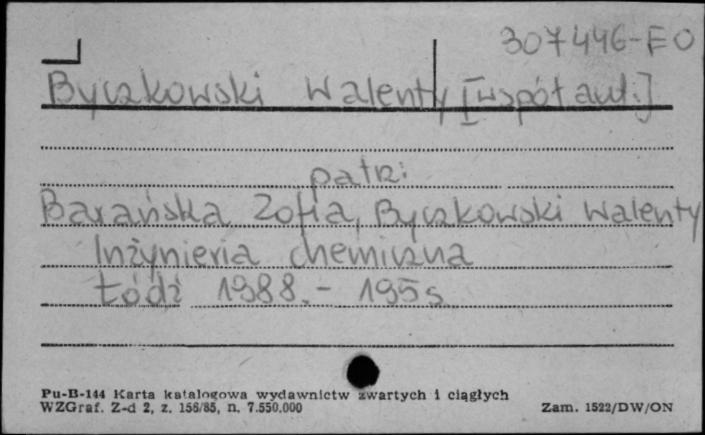 307446-EO
Byczkowski Walenty [współaut.]
patrz:
Barańska Zofia, Byczkowski Walenty
Inżynieria chemiczna
Łódź 1988. - 195 s
Pu-B-144 Karta katalogowa wydawnictw zwartych i ciągłych
WZGraf. Z-d 2, z. 156/85, n. 7.550.000
Zam. 1522/DW/ON